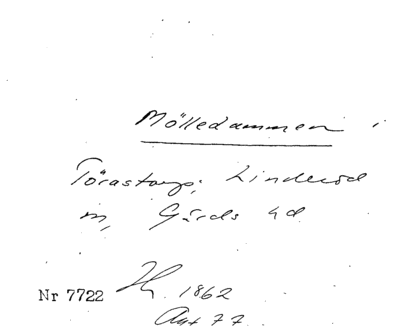 Mölledammen i
Törastorp; Linderöd
m, Gärds hd
Nr 7722 1862
Akt 77